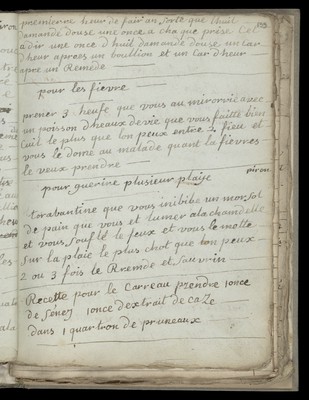 premierme heur de fair an sorte que lhuil
damande douse une once a chaque prése Cet
a dir une once dhuil damande douse un car
dheur apraes un boullion et un Car dheur
apre un Remede
pour les fievre
prener 3 heufe que vous au miroir avec
un poisson dheaux de vie que vous faitte bien
Cuit le plus que lon peux entre 2 fieu et
vous le done au malade quant la fievres
le veux prendre
pour guerine plusieur plaije
torabantine que vous inibibe un morsot
de pain que vous et lumer a la chamdelle
et vous souflé le feux et vous le motte
sur la plaie le plus chot que ton peux
2 ou 3 fois le Rremde et souvrin
Recette pour le Carreau prendre 1once
de séney 1once dextrait de caze
dans 1 quartron de pruneaux